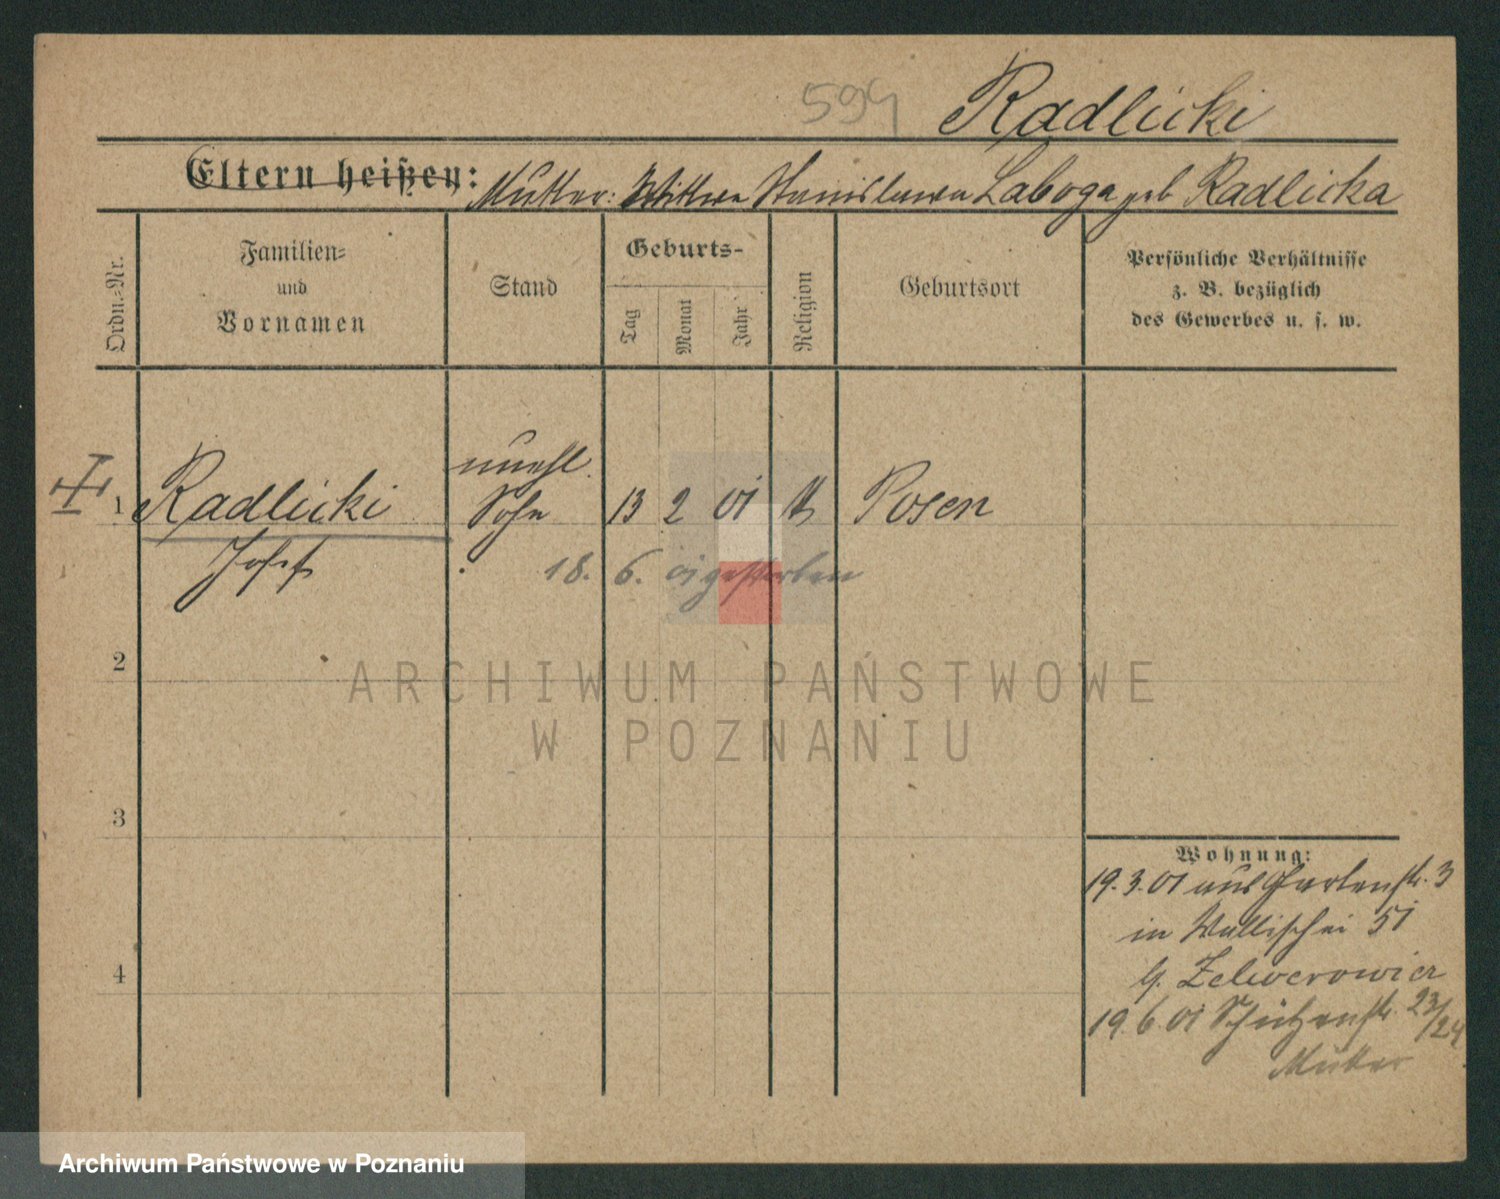 594 Radlicki
Eltern heißen: Mutter: Wittwe Stanislawa Laboga geb Radlicka
Ordn.=Nr.
Familien=
und
Vornamen
Stand
Geburts-
Tag
Monat
Jahr
Religion
Geburtsort
Persönliche Verhältnisse
z. B. bezüglich
des Gewerbes u. s. w.
unehl.
1 Radlicki Sohn 13 2 01 k Posen
Josef
18. 6. 01 gestorben
2
ARCHIWUM PAŃSTWOWE
W POZNANIU
3
4
Wohnung:
19.3.01 aus Gartenstr. 3
in Wallischei 51
b. Zelwerowicz
19.6.01 Schützenstr. 23/24
Mutter
Archiwum Państwowe w Poznaniu